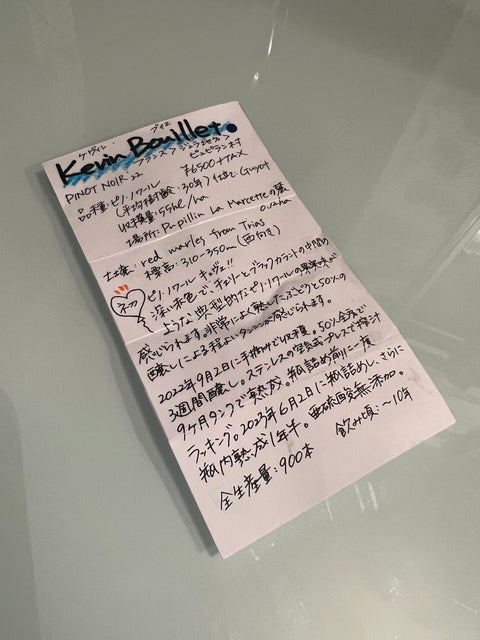 ケヴィン ブイエ
Kevin Bouillet.
フランス>ジュラ地方>
ピュピラン村
PINOT NOIR '22 ¥6500+TAX
品種:ピノ・ノワール
(平均樹齢:30年) 仕立て Guyot
収穫量:55hl/ha
場所: Pupillin La Marcette の畑
0.12ha
土壌: red marles from Trias
標高: 310-350m (西向き)
ピノ・ノワール キュヴェ!!
深い赤色で、チェリーとブラックカラントの中間の
ような典型的なピノ・ノワールの果実味が
感じられます。非常によく熟したぶどうと50%の
醸しによる程よいタンニンが感じられます。
2022年9月2日に手摘みで収穫。50%全房で
3週間醸し。ステンレスの空気式プレスで搾汁
9ヶ月タンクで熟成。瓶詰め前に一度
ラッキング。2023年6月2日に瓶詰めし、さらに
瓶内熟成1年半。亜硫酸無添加。
飲み頃:〜10年
全生産量:900本